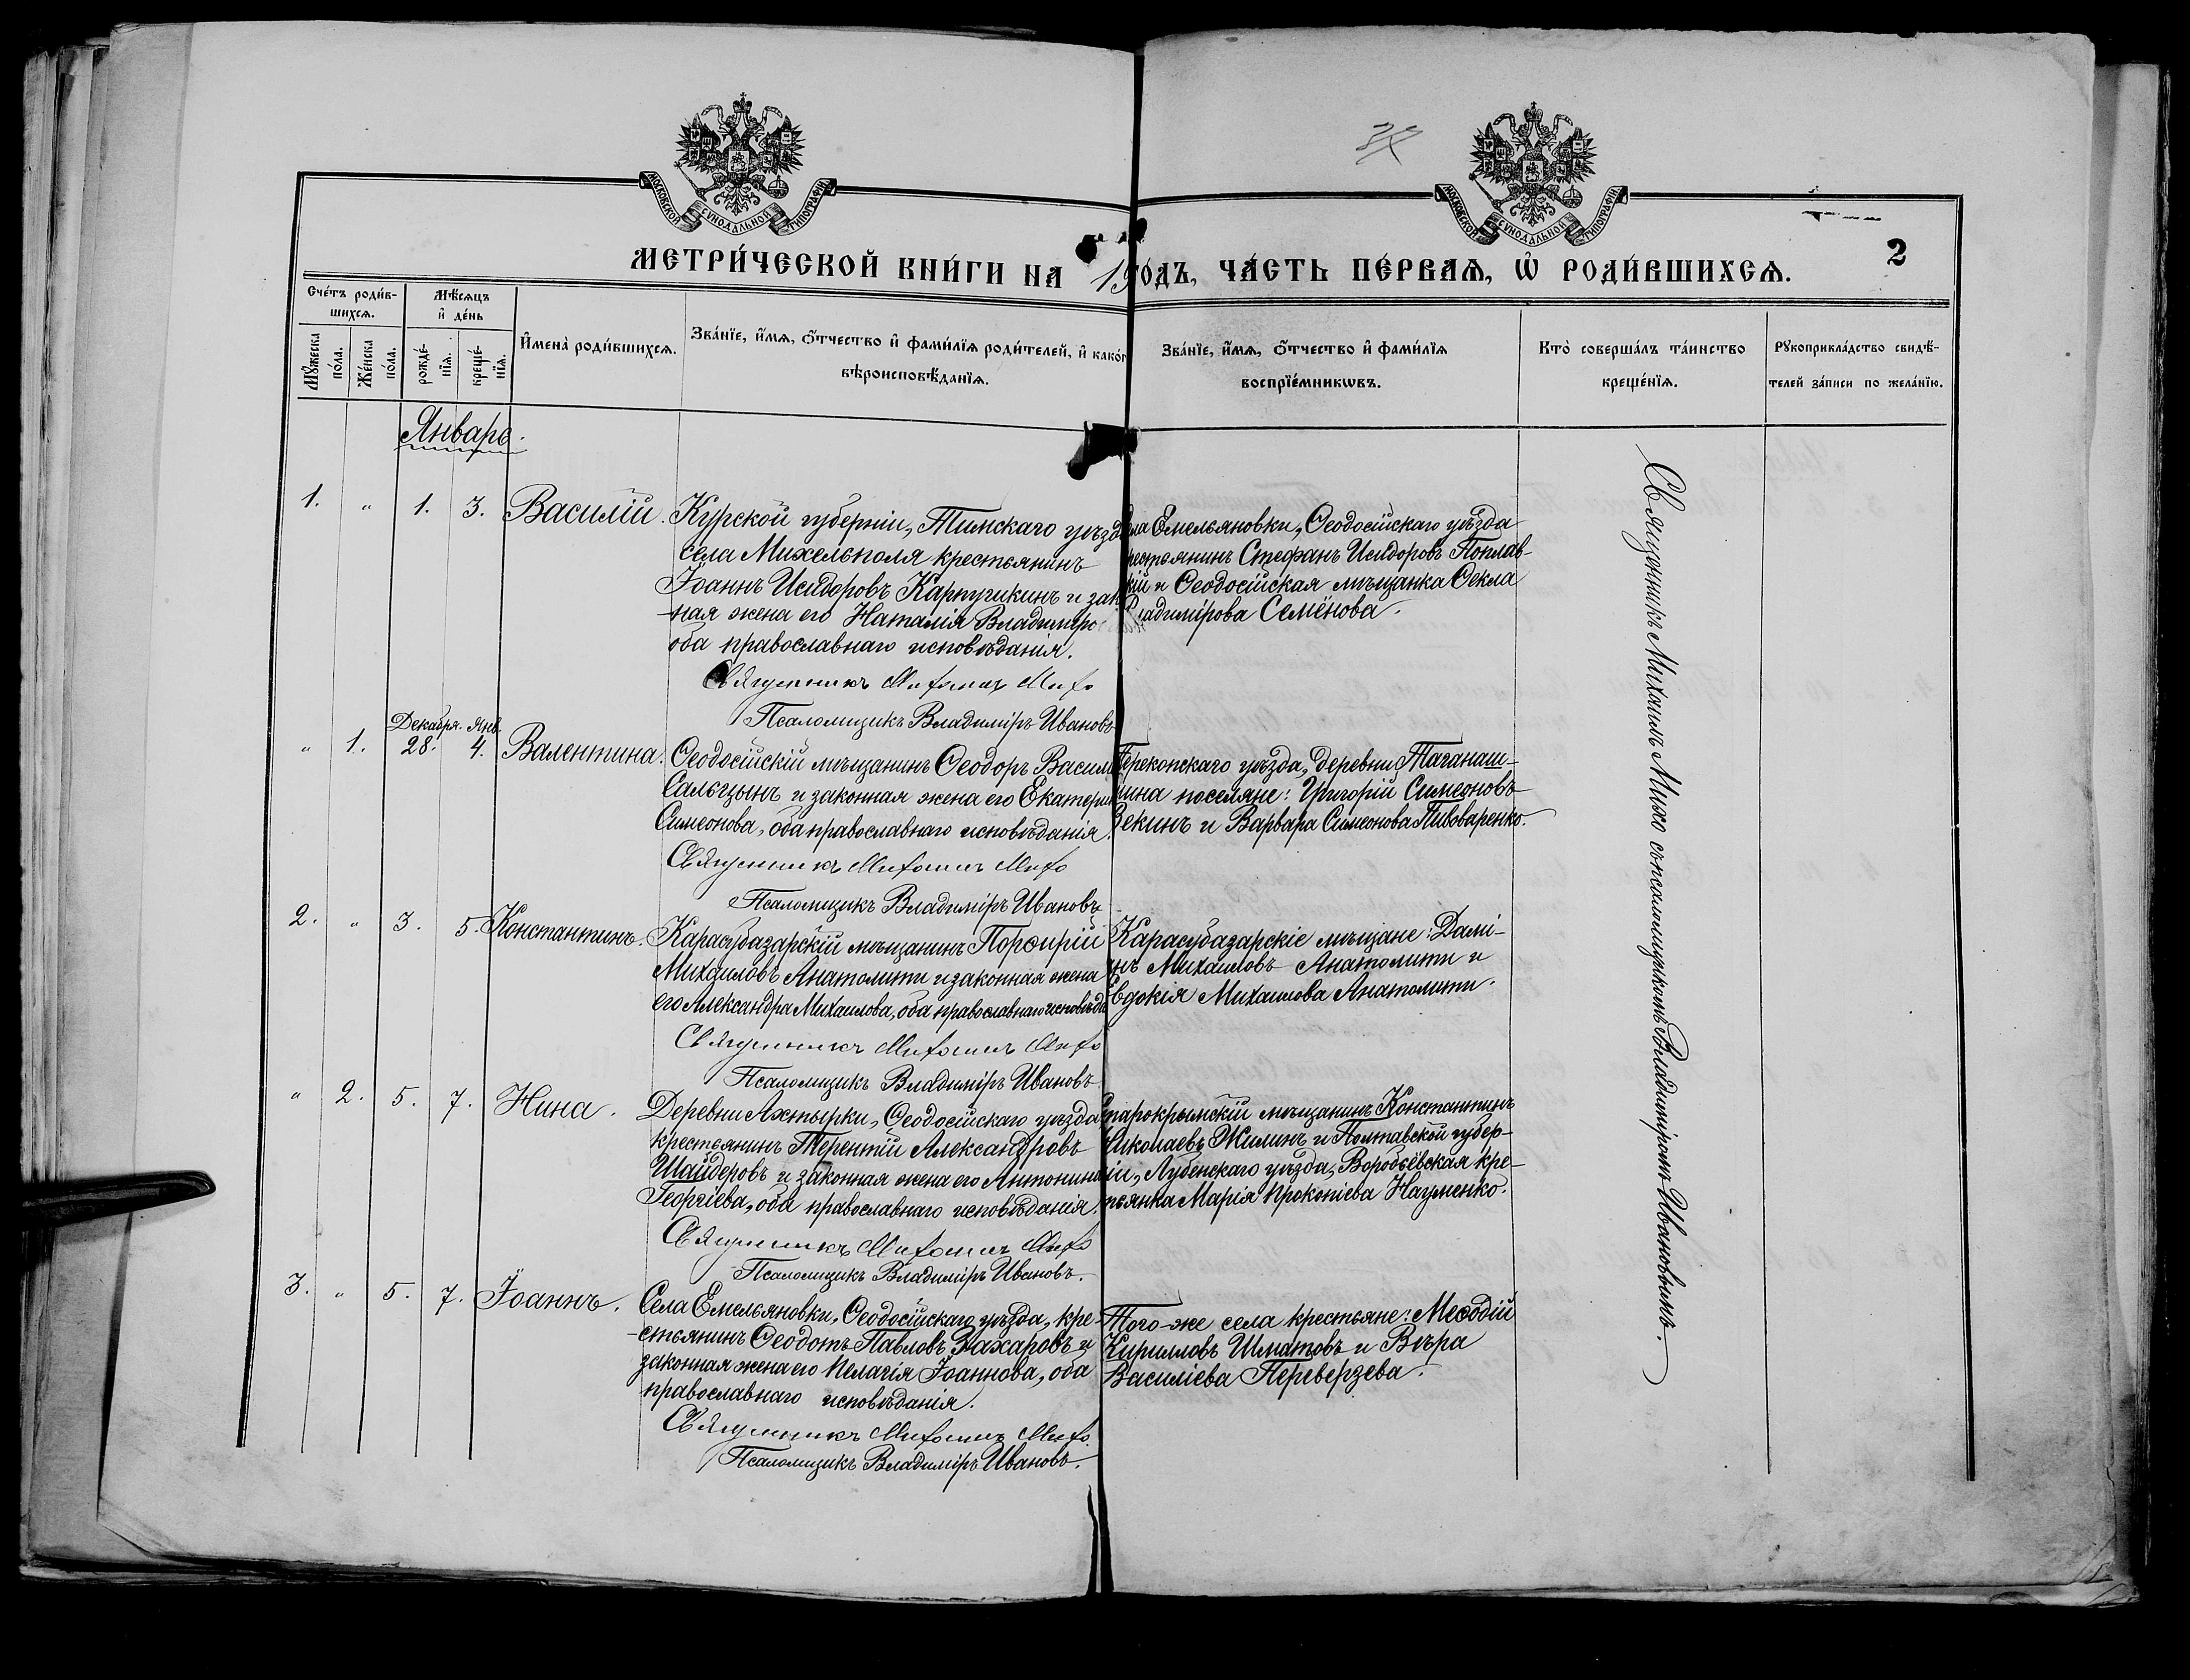 МОСКОВСКОЙ СѴНОДАЛЬНОЙ ТИПОГРАФІИ
МОСКОВСКОЙ СѴНОДАЛЬНОЙ ТИПОГРАФІИ
2
МЕТРИ́ЧЕСКОЙ КНИ́ГИ НА 19
ГО́ДЪ, ЧА́СТЬ ПЕ́РВАѦ, Ѡ҆ РОДИ́ВШИХСѦ.
Сче́тъ роди́в-
шихсѧ.
Мꙋ́жеска
по́ла.
Же́нска
по́ла.
Мѣ́сѧцъ
и҆ де́нь
рожде́-
нїѧ.
креще́-
нїѧ.
И҆мена̀ роди́вшихсѧ.
Зва́нїе, и҆́мѧ, ѻ҆́тчество и҆ фами́лїѧ роди́телей, и҆ како́г
вѣроисповѣ́данїѧ.
Зва́нїе, и҆́мѧ, ѻ҆́тчество и҆ фами́лїѧ
воспрїе́мникѡвъ.
Кто̀ соверша́лъ та́инство
креще́нїѧ.
Рꙋкоприкла́дство свидѣ́-
телей за́писи по жела́нїю.
Январь.
1. " 1. 3. Василій.
Курской губерніи, Тимскаго уѣзд
села Михельполя крестьянинъ
Іоаннъ Исидоровъ Карпушкинъ и зак
ная жена его Наталія Владиміро
оба православнаго исповѣданія.
Священникъ Михаилъ Михо
Псаломщикъ Владиміръ Ивановъ
ла Емельяновки, Ѳеодосійскаго уѣзда
рестьянинъ Стефанъ Исидоровъ Поплав-
кій и Ѳеодосійская мѣщанка Ѳекла
ладимірова Семёнова.
Декабря. Янв.
" 1. 28. 4. Валентина.
Ѳеодосійскій мѣщанинъ Ѳеодоръ Васил
Сальцынъ и законная жена его Екатери
Симеонова, оба православнаго исповѣданія.
Священникъ Михаилъ Михо
Псаломщикъ Владиміръ Ивановъ
Перекопскаго уѣзда, деревни Таганаш-
мина поселяне: Григорій Симеоновъ
Зекинъ и Варвара Симеонова Пивоваренко.
2. " 3. 5. Константинъ.
Карасубазарскій мѣщанинъ Порфирій
Михаиловъ Анатолити и законная жена
его Александра Михаилова, оба православнаго исповѣда
Священникъ Михаилъ Михо
Псаломщикъ Владиміръ Ивановъ
Карасубазарскіе мѣщане: Дамі-
нъ Михаиловъ Анатолити и
Евдокія Михаилова Анатолити.
" 2. 5. 7. Нина.
Деревни Ахтырки, Ѳеодосійскаго уѣзда
крестьянинъ Терентій Александровъ
Шайдеровъ и законная жена его Антонина
Георгіева, оба православнаго исповѣданія.
Священникъ Михаилъ Михо
Псаломщикъ Владиміръ Ивановъ.
Старокрымскій мѣщанинъ Константинъ
Николаевъ Жилинъ и Полтавской губер-
ніи, Лубенскаго уѣзда, Воробьёвская кре-
тьянка Марія Прокопіева Науменко.
3. " 5. 7. Іоаннъ.
Села Емельяновки, Ѳеодосійскаго уѣзда, кре-
-стьянинъ Ѳеодотъ Павловъ Захаровъ и
законная жена его Пелагія Іоаннова, оба
православнаго исповѣданія.
Священникъ Михаилъ Михо
Псаломщикъ Владиміръ Ивановъ.
Того-же села крестьяне: Меѳодій
Кирилловъ Шматовъ и Вѣра
Василіева Переверзева.
Священникъ Михаилъ Михо съ псаломщикомъ Владиміромъ Ивановымъ.